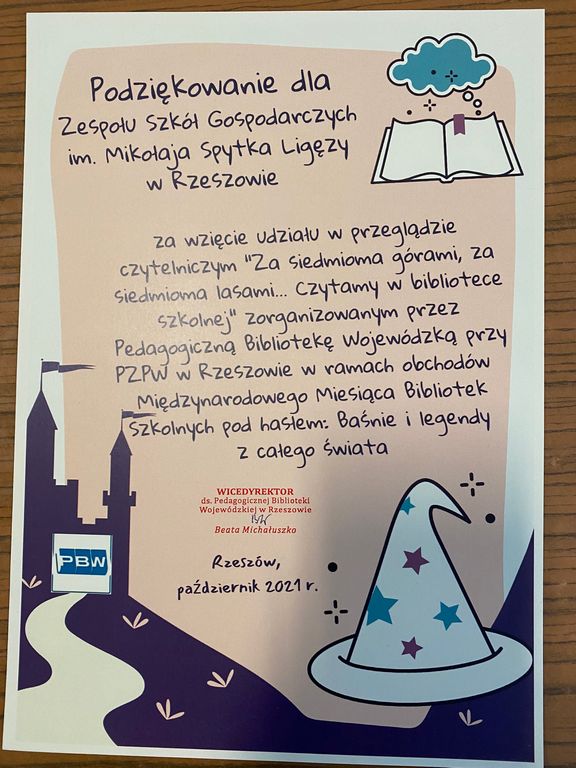 Podziękowanie dla
Zespołu Szkół Gospodarczych
im. Mikołaja Spytka Ligęzy
w Rzeszowie
za wzięcie udziału w przeglądzie
czytelniczym "Za siedmioma górami, za
siedmioma lasami... Czytamy w bibliotece
szkolnej" zorganizowanym przez
Pedagogiczną Bibliotekę Wojewódzką przy
PZPW w Rzeszowie w ramach obchodów
Międzynarodowego Miesiąca Bibliotek
Szkolnych pod hasłem: Baśnie i legendy
z całego świata
WICEDYREKTOR
ds. Pedagogicznej Biblioteki
Wojewódzkiej w Rzeszowie
Beata Michałuszko
Rzeszów,
październik 2021 r.
PBW